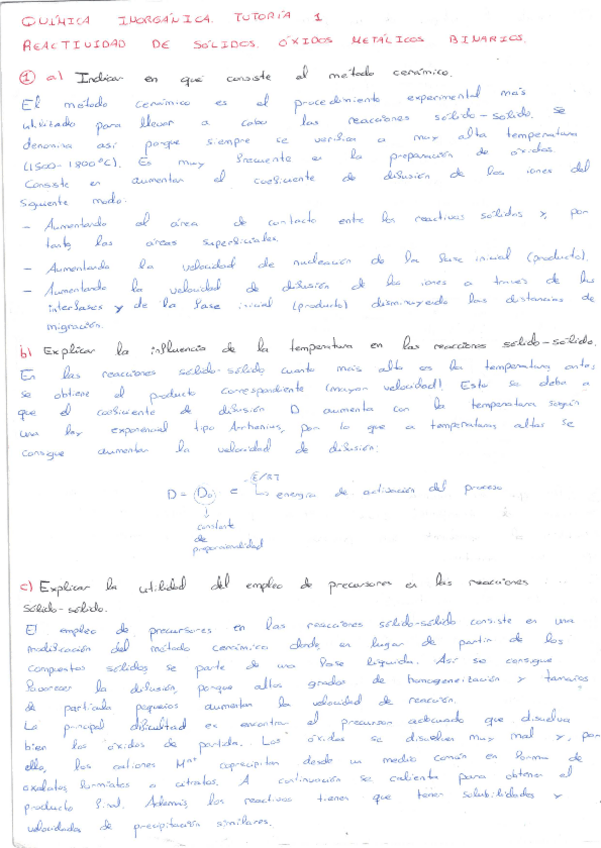 QUÍMICA INORGÁNICA. TUTORÍA 1
REACTIVIDAD DE SÓLIDOS. ÓXIDOS METÁLICOS BINARIOS.
1 a) Indicar en qué consiste el método cerámico.
El método cerámico es el procedimiento experimental más
utilizado para llevar a cabo las reacciones sólido-sólido. Se
denomina así porque siempre se verifica a muy alta temperatura
(1500-1800ºC). Es muy frecuente en la preparación de óxidos.
Consiste en aumentar el coeficiente de difusión de los iones del
siguiente modo:
- Aumentando el área de contacto entre los reactivos sólidos y, por
tanto, las áreas superficiales.
- Aumentando la velocidad de nucleación de la fase inicial (producto).
- Aumentando la velocidad de difusión de los iones a través de las
interfases y de la fase inicial (producto) disminuyendo las distancias de
migración.
b) Explicar la influencia de la temperatura en las reacciones sólido-sólido.
En las reacciones sólido-sólido cuanto más alta es la temperatura, antes
se obtiene el producto correspondiente (mayor velocidad). Esto se debe a
que el coeficiente de difusión D aumenta con la temperatura según
una ley exponencial tipo Arrhenius, por lo que a temperaturas altas se
consigue aumentar la velocidad de difusión:
D = D₀ e -E/RT
energía de activación del proceso
constante
de
proporcionalidad
c) Explicar la utilidad del empleo de precursores en las reacciones
sólido-sólido.
El empleo de precursores en las reacciones sólido-sólido consiste en una
modificación del método cerámico donde, en lugar de partir de los
compuestos sólidos, se parte de una fase líquida. Así se consigue
favorecer la difusión, porque altos grados de homogeneización y tamaños
de partícula pequeños aumentan la velocidad de reacción.
La principal dificultad es encontrar el precursor adecuado que disuelva
bien los óxidos de partida. Los óxidos se disuelven muy mal y, por
ello, los cationes Mⁿ⁺ coprecipitan desde un medio común en forma de
oxalatos, formiatos o citratos. A continuación se calienta para obtener el
producto final. Además, los reactivos tienen que tener solubilidades y
velocidades de precipitación similares.